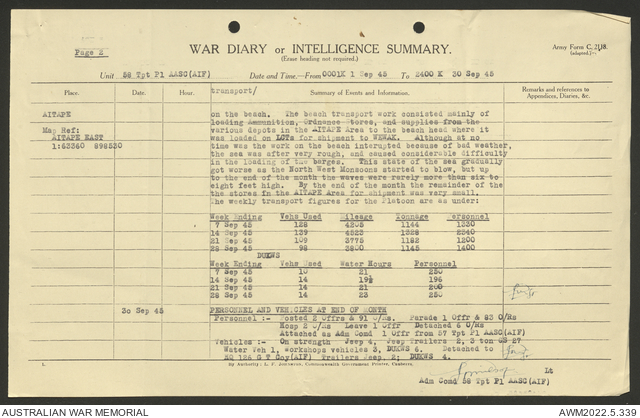 Page 2
WAR DIARY or INTELLIGENCE SUMMARY.
(Erase heading not required.)
Army Form C. 2118.
(adapted.)
Unit 58 Tpt Pl AASC(AIF) Date and Time.—From 0001K 1 Sep 45 To 2400 K 30 Sep 45
Place. Date Hour. Summary of Events and Information. Remarks and references to Appendices, Diaries, &c.
transport/
AITAPE
Map Ref:
AITAPE EAST
1:63360 898520
on the beach. The beach transport work consisted mainly of
loading Ammunition, Ordnance Stores, and supplies from the
various depots in the AITAPE Area to the beach head where it
was loaded on LCTs for shipment to WEWAK. Although at no
time was the work on the beach interupted because of bad weather,
the sea was after very rough, and caused considerable difficulty
in the loading of the barges. This state of the sea gradually
got worse as the North West Monsoons started to blow, but up
to the end of the month the waves were rarely more than six to
eight feet high. By the end of the month the remainder of
the stores in the AITAPE Area for shipment was very small.
The weekly transport figures for the Platoon are as under:
Week Ending Vehs Used Mileage Tonnage Personnel
7 Sep 45 128 4205 1144 1230
14 Sep 45 139 4523 1328 2340
21 Sep 45 109 3775 1182 1200
28 Sep 45 98 3800 1145 1400
DUKWS
Week Ending Vehs Used Water Hours Personnel
7 Sep 45 10 21 250
14 Sep 45 14 19½ 196
21 Sep 45 14 21 200
28 Sep 45 14 23 250
30 Sep 45
PERSONNEL AND VEHICLES AT END OF MONTH
Personnel :- Posted 2 Offrs & 91 O/Rs. Parade 1 Offr & 83 O/Rs
Hosp 2 O/Rs Leave 1 Offr Detached 6 O/Rs
Attached as Adm Comd 1 Offr from 57 Tpt Pl AASC(AIF)
Vehicles :- On strength Jeep 4, Jeep Trailers 2, 3 ton GS 27
Water Veh 1, Workshops vehicles 3, DUKWS 4. Detached to
HQ 126 G T Coy(AIF) Trailers Jeep, 2; DUKWS 4.
Lt
Adm Comd 58 Tpt Pl AASC(AIF)
AUSTRALIAN WAR MEMORIAL
AWM2022.5.339